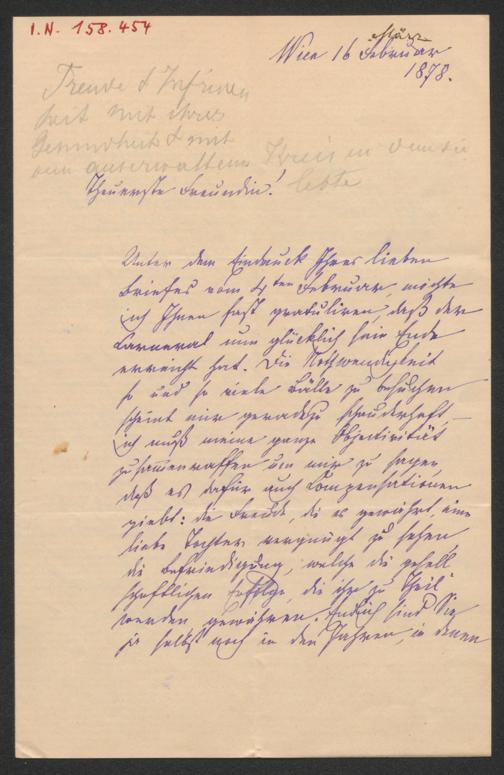 I.N. 158.454
März
Wien 16 Februar
1878.
Freude & Zufrieden
heit mit ihrer
Gesundheit & mit
dem auserwälten Kreis in dem sie
lebte
Theuerste Freundin!
Unter dem Eindruck Ihres lieben
Briefes vom 4ten Februar, möchte
ich Ihnen fast gratuliren, daß der
Carneval nun glücklich sein Ende
erreicht hat. Die Nothwendigkeit
so und so viele Bälle zu besuchen
scheint mir geradezu schauderhaft,
ich muß meine ganze Objectivität
zusammenraffen um mir zu sagen,
daß es dafür auch Compensationen
giebt: die Freude, die es gewährt, eine
liebe Tochter vergnügt zu sehen,
die Befriedigung, welche die gesell
schaftlichen Erfolge, die ihr zu Theil
werden gewähren. Endlich sind Sie
ja selbst noch in den Jahren, in denen